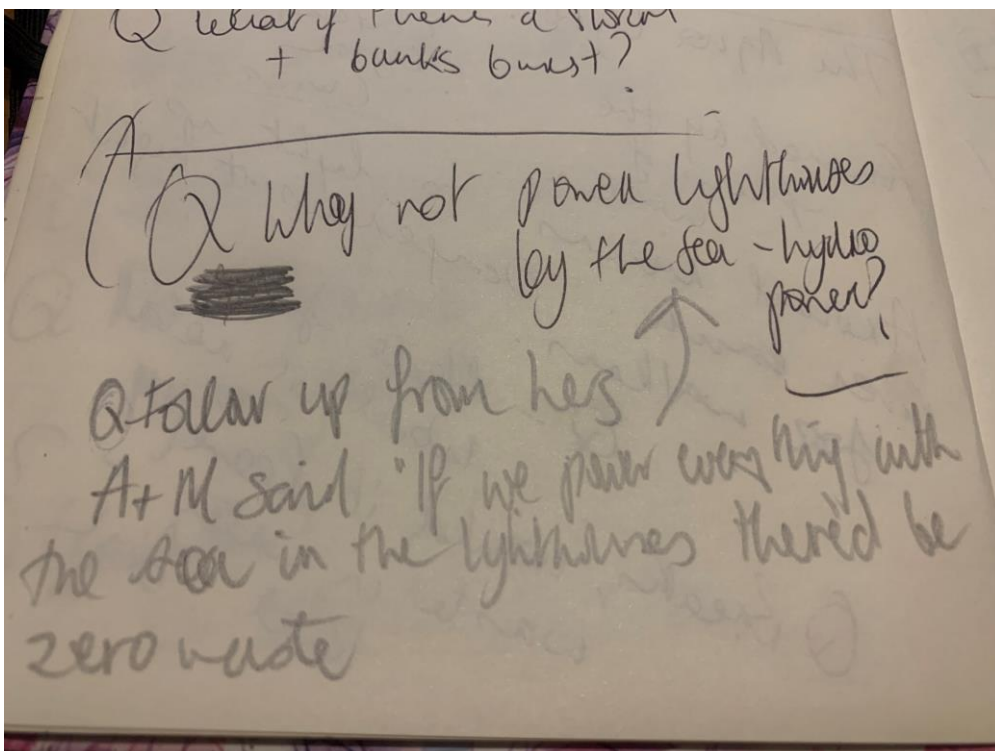 Q What if there's a storm
+ banks burst?
Q Why not power lighthouses
by the sea - hydro
power?
Q Follow up from hers
A+M said "If we power everything with
the sea in the lighthouses there'd be
zero waste